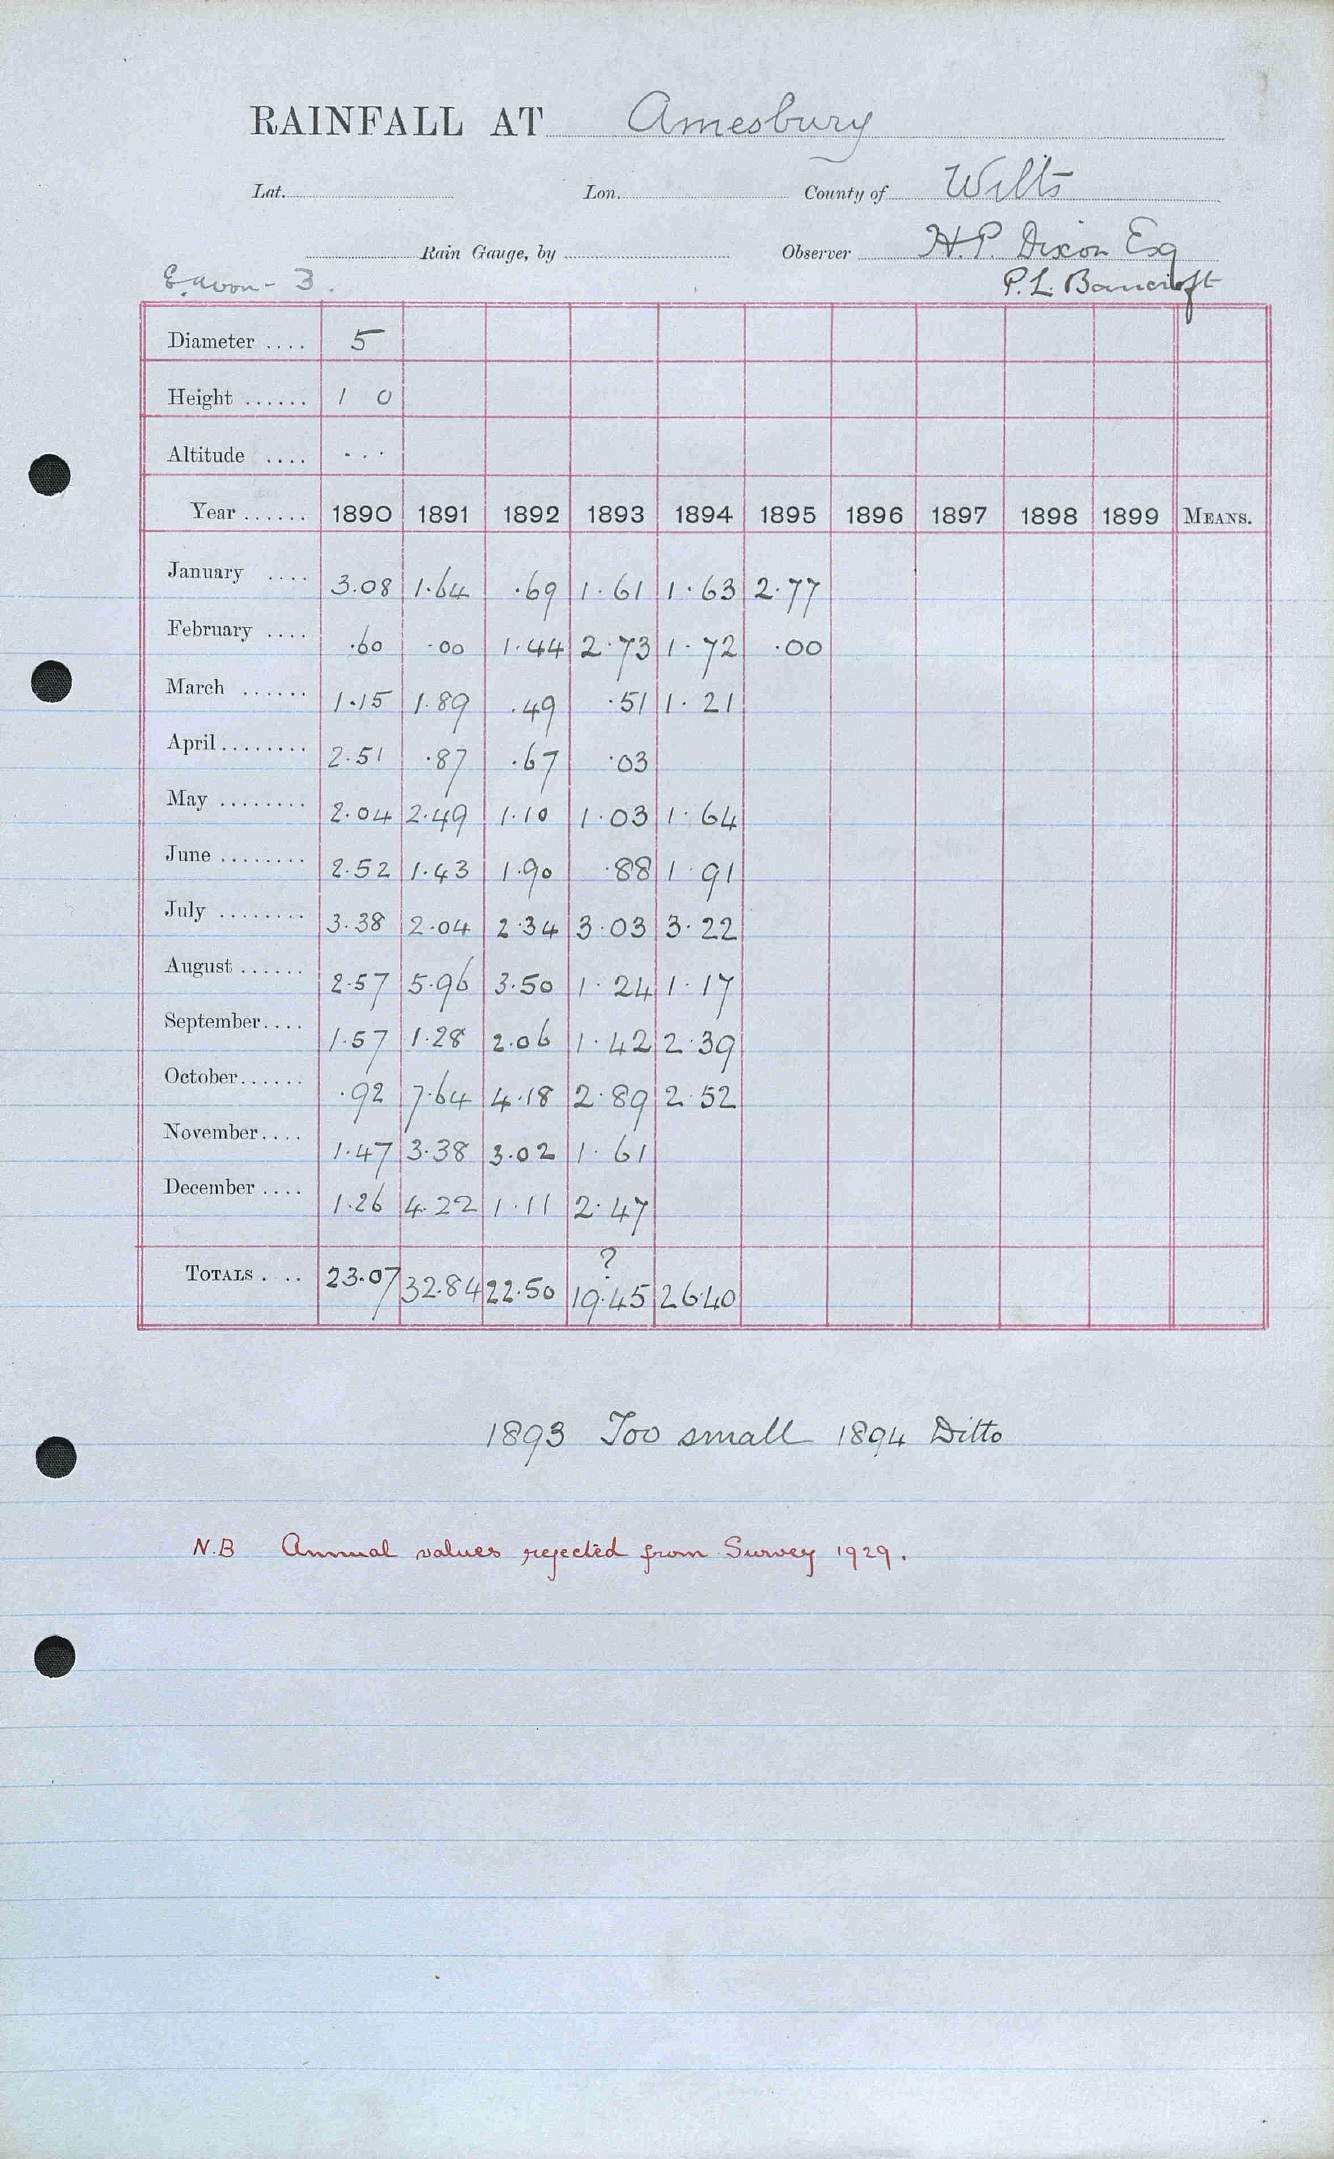 RAINFALL AT Amesbury
Lat. Lon. County of Wilts
Rain Gauge, by Observer H.P. Dixon Esq
E. Avon - 3. P.L. Bancroft
Diameter .... 5
Height ...... 1 0
Altitude .... ...
Year ...... 1890 1891 1892 1893 1894 1895 1896 1897 1898 1899 MEANS.
January .... 3.08 1.64 .69 1.61 1.63 2.77
February .... .60 .00 1.44 2.73 1.72 .00
March ...... 1.15 1.89 .49 .51 1.21
April ........ 2.51 .87 .67 .03
May ........ 2.04 2.49 1.10 1.03 1.64
June ........ 2.52 1.43 1.90 .88 1.91
July ........ 3.38 2.04 2.34 3.03 3.22
August ...... 2.57 5.96 3.50 1.24 1.17
September.... 1.57 1.28 2.06 1.42 2.39
October...... .92 7.64 4.18 2.89 2.52
November.... 1.47 3.38 3.02 1.61
December .... 1.26 4.22 1.11 2.47
?
TOTALS .... 23.07 32.84 22.50 19.45 26.40
1893 Too small 1894 Ditto
N.B Annual values rejected from Survey 1929.